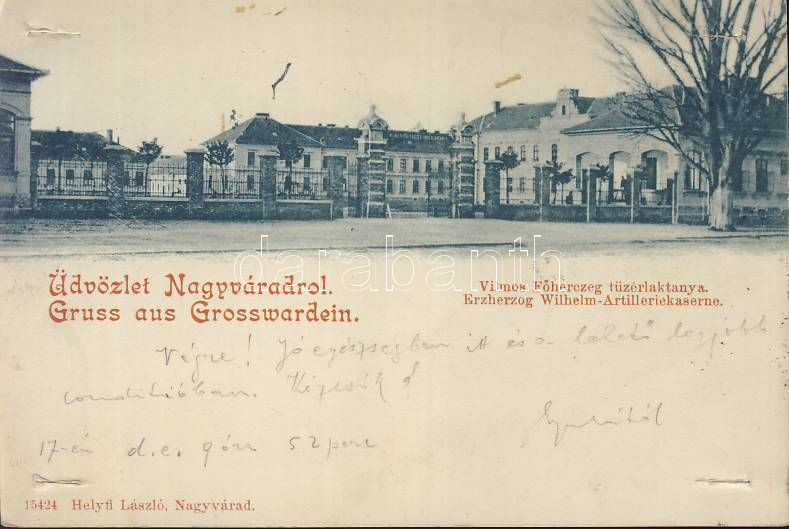 darabanth.com
Üdvözlet Nagyváradról.
Gruss aus Grosswardein.
Vilmos Főherczeg tüzérlaktanya.
Erzherzog Wilhelm-Artilleriekaserne.
Végre! Jó egészségben itt és a lehető legjobb
conditióban. Kézcsók
17-én d.e. 9 óra 52 perc
15424 Helyfi László, Nagyvárad.